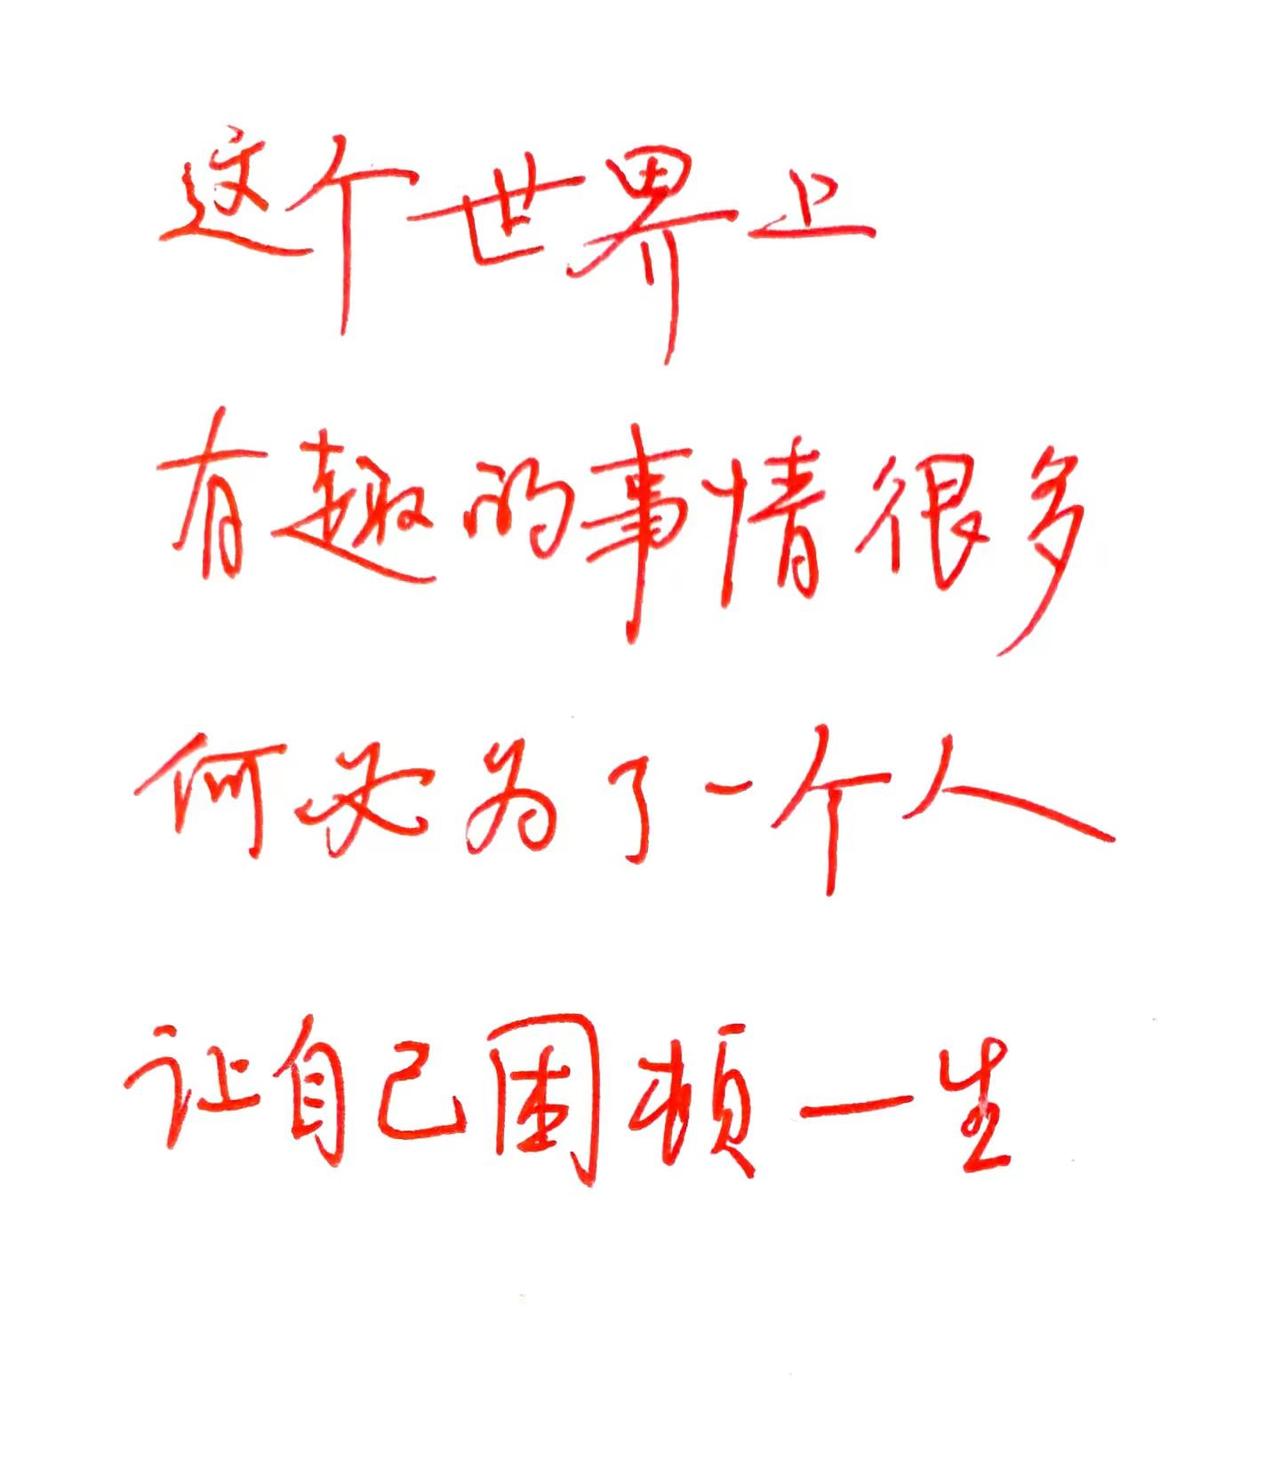 这个世界上
有趣的事情很多
何必为了一个人
让自己困顿一生